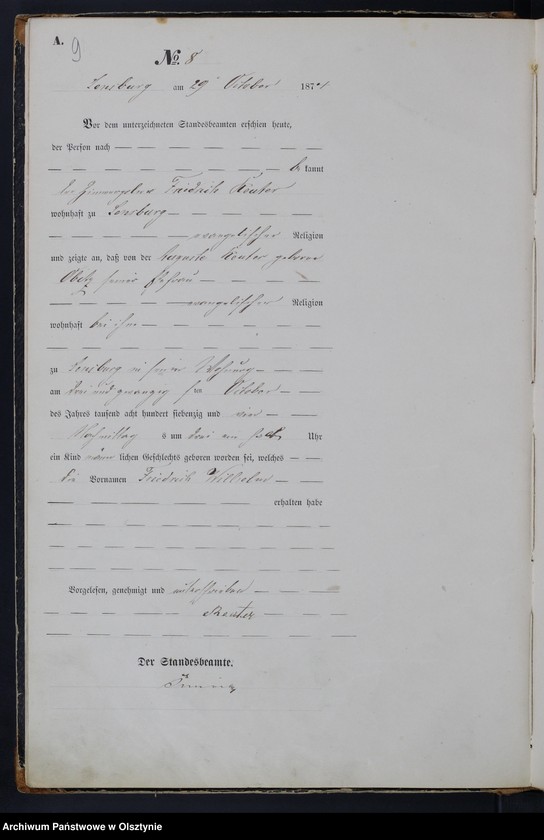 A.
9
No. 8
Sensburg am 29 October 1874
Vor dem unterzeichneten Standesbeamten erschien heute,
der Person nach
be kannt
der Friedrich
wohnhaft zu Sensburg
evangelischer Religion
und zeigte an, daß von der Auguste geborene
seiner Ehefrau
evangelischer Religion
wohnhaft bei ihm
zu Sensburg in seiner Wohnung
am drei und zwanzig sten October
des Jahres tausend acht hundert siebenzig und vier
Nachmittag s um drei ein halb Uhr
ein Kind männ lichen Geschlechts geboren worden sei, welches
die Vornamen Friedrich Wilhelm
erhalten habe
Vorgelesen, genehmigt und unterschrieben
Der Standesbeamte.
Archiwum Państwowe w Olsztynie